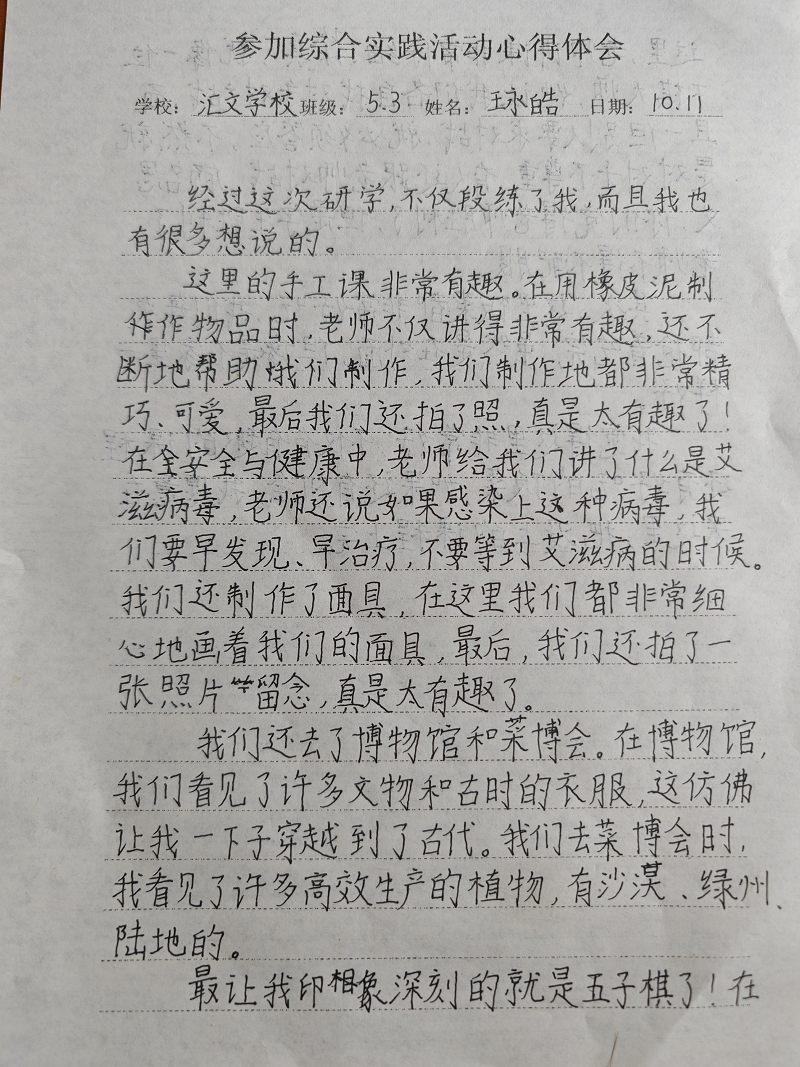 参加综合实践活动心得体会
学校：汇文学校 班级：5.3 姓名：王永皓 日期：10.11
经过这次研学，不仅段练了我，而且我也
有很多想说的。
这里的手工课非常有趣。在用橡皮泥制
作作物品时，老师不仅讲得非常有趣，还不
断地帮助我们制作，我们制作地都非常精
巧、可爱，最后我们还拍了照，真是太有趣了！
在全安全与健康中，老师给我们讲了什么是艾
滋病毒，老师还说如果感染上这种病毒，我
们要早发现、早治疗，不要等到艾滋病的时候。
我们还制作了面具，在这里我们都非常细
心地画着我们的面具，最后，我们还拍了一
张照片留念，真是太有趣了。
我们还去了博物馆和菜博会。在博物馆，
我们看见了许多文物和古时的衣服，这仿佛
让我一下子穿越到了古代。我们去菜博会时，
我看见了许多高效生产的植物，有沙漠、绿州、
陆地的。
最让我印相象深刻的就是五子棋了！在